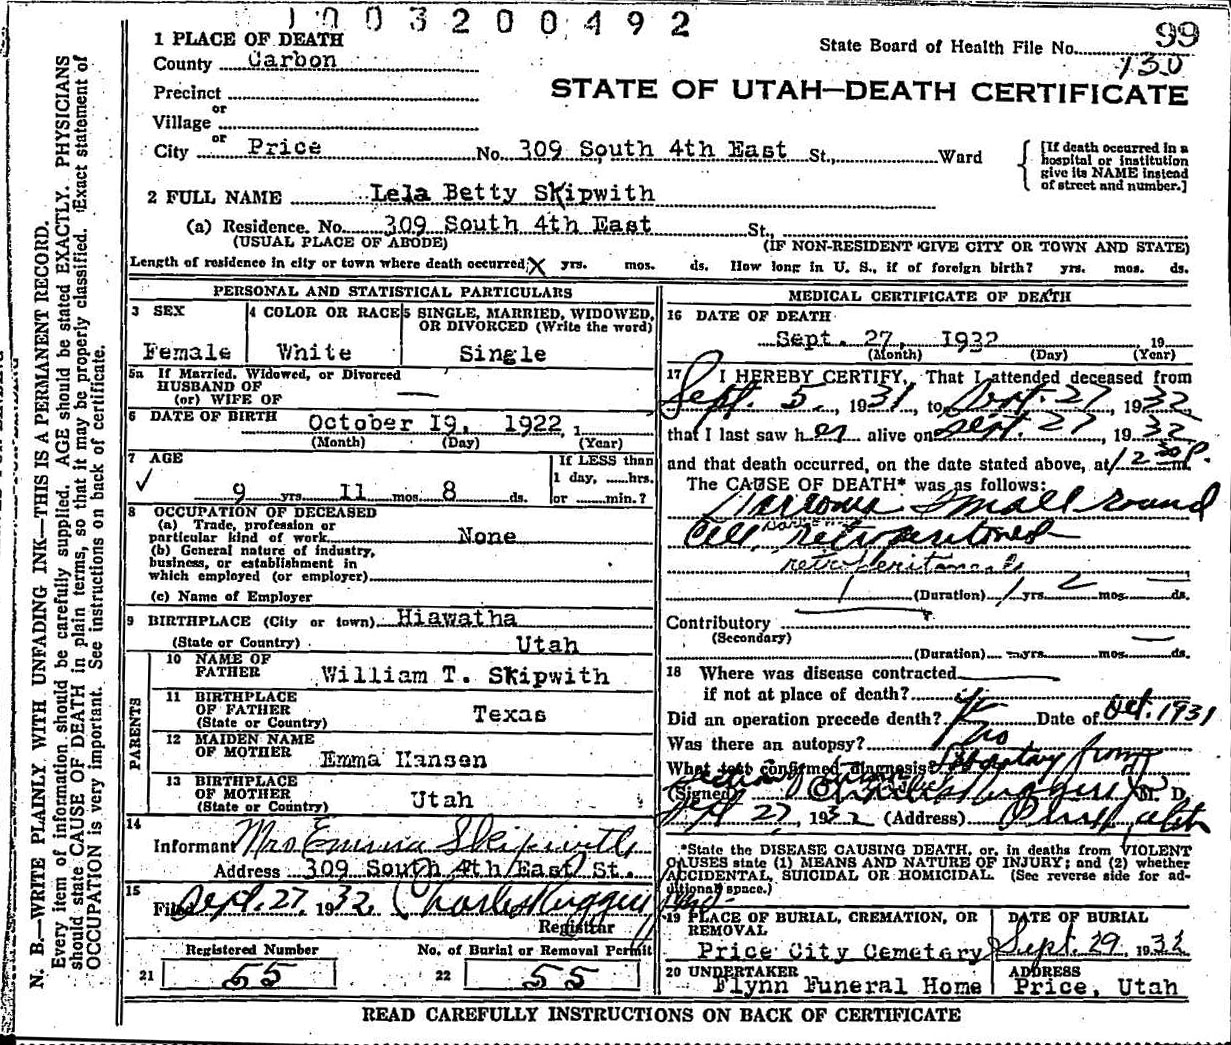 1003200492
99
130
1 PLACE OF DEATH
State Board of Health File No.
County Carbon
STATE OF UTAH—DEATH CERTIFICATE
Precinct
or
Village
or
City Price No. 309 South 4th East St., Ward
[If death occurred in a hospital or institution give its NAME instead of street and number.]
2 FULL NAME Lela Betty Skipwith
(a) Residence. No. 309 South 4th East St.,
(USUAL PLACE OF ABODE) (IF NON-RESIDENT GIVE CITY OR TOWN AND STATE)
Length of residence in city or town where death occurred X yrs. mos. ds. How long in U. S., if of foreign birth? yrs. mos. ds.
PERSONAL AND STATISTICAL PARTICULARS
3 SEX
Female
4 COLOR OR RACE
White
5 SINGLE, MARRIED, WIDOWED, OR DIVORCED (Write the word)
Single
5a If Married, Widowed, or Divorced
HUSBAND OF
(or) WIFE OF —
6 DATE OF BIRTH October 19, 1922, 1
(Month) (Day) (Year)
7 AGE
9 yrs. 11 mos. 8 ds.
If LESS than
1 day, ......hrs.
or ......min.?
8 OCCUPATION OF DECEASED
(a) Trade, profession or
particular kind of work None
(b) General nature of industry,
business, or establishment in
which employed (or employer)
(c) Name of Employer
9 BIRTHPLACE (City or town) Hiawatha
(State or Country) Utah
PARENTS
10 NAME OF FATHER William T. Skipwith
11 BIRTHPLACE OF FATHER (State or Country) Texas
12 MAIDEN NAME OF MOTHER Emma Hansen
13 BIRTHPLACE OF MOTHER (State or Country) Utah
14
Informant Mrs Emma Skipwith
Address 309 South 4th East St.
15
Filed Sept. 27, 1932, Charles Ruggeri
Registrar
Registered Number
21 55
No. of Burial or Removal Permit
22 55
MEDICAL CERTIFICATE OF DEATH
16 DATE OF DEATH
Sept. 27, 1932 19
(Month) (Day) (Year)
17 I HEREBY CERTIFY, That I attended deceased from
Sept. 5, 1931, to Sept. 27, 1932,
that I last saw her alive on Sept. 27, 1932
and that death occurred, on the date stated above, at 12 30 P. m.
The CAUSE OF DEATH* was as follows:
Sarcoma small round
Cell, retroperitoneal
retroperitoneal
(Duration) 1 yrs. 2 mos. — ds.
Contributory
(Secondary)
(Duration) yrs. mos. ds.
18 Where was disease contracted
if not at place of death?
Did an operation precede death? Date of Oct. 1931
Was there an autopsy? no
What test confirmed diagnosis? Laboratory from
(Signed) Charles Ruggeri M. D.
Sept 27, 1932 (Address) Price, Utah
*State the DISEASE CAUSING DEATH, or, in deaths from VIOLENT
CAUSES state (1) MEANS AND NATURE OF INJURY; and (2) whether
ACCIDENTAL, SUICIDAL OR HOMICIDAL. (See reverse side for ad-
ditional space.)
19 PLACE OF BURIAL, CREMATION, OR REMOVAL
Price City Cemetery
DATE OF BURIAL
Sept. 29, 1932
20 UNDERTAKER
Flynn Funeral Home
ADDRESS
Price, Utah
READ CAREFULLY INSTRUCTIONS ON BACK OF CERTIFICATE
N. B.—WRITE PLAINLY WITH UNFADING INK—THIS IS A PERMANENT RECORD.
Every item of information should be carefully supplied. AGE should be stated EXACTLY. PHYSICIANS
should state CAUSE OF DEATH in plain terms, so that it may be properly classified. Exact statement of
OCCUPATION is very important. See instructions on back of certificate.